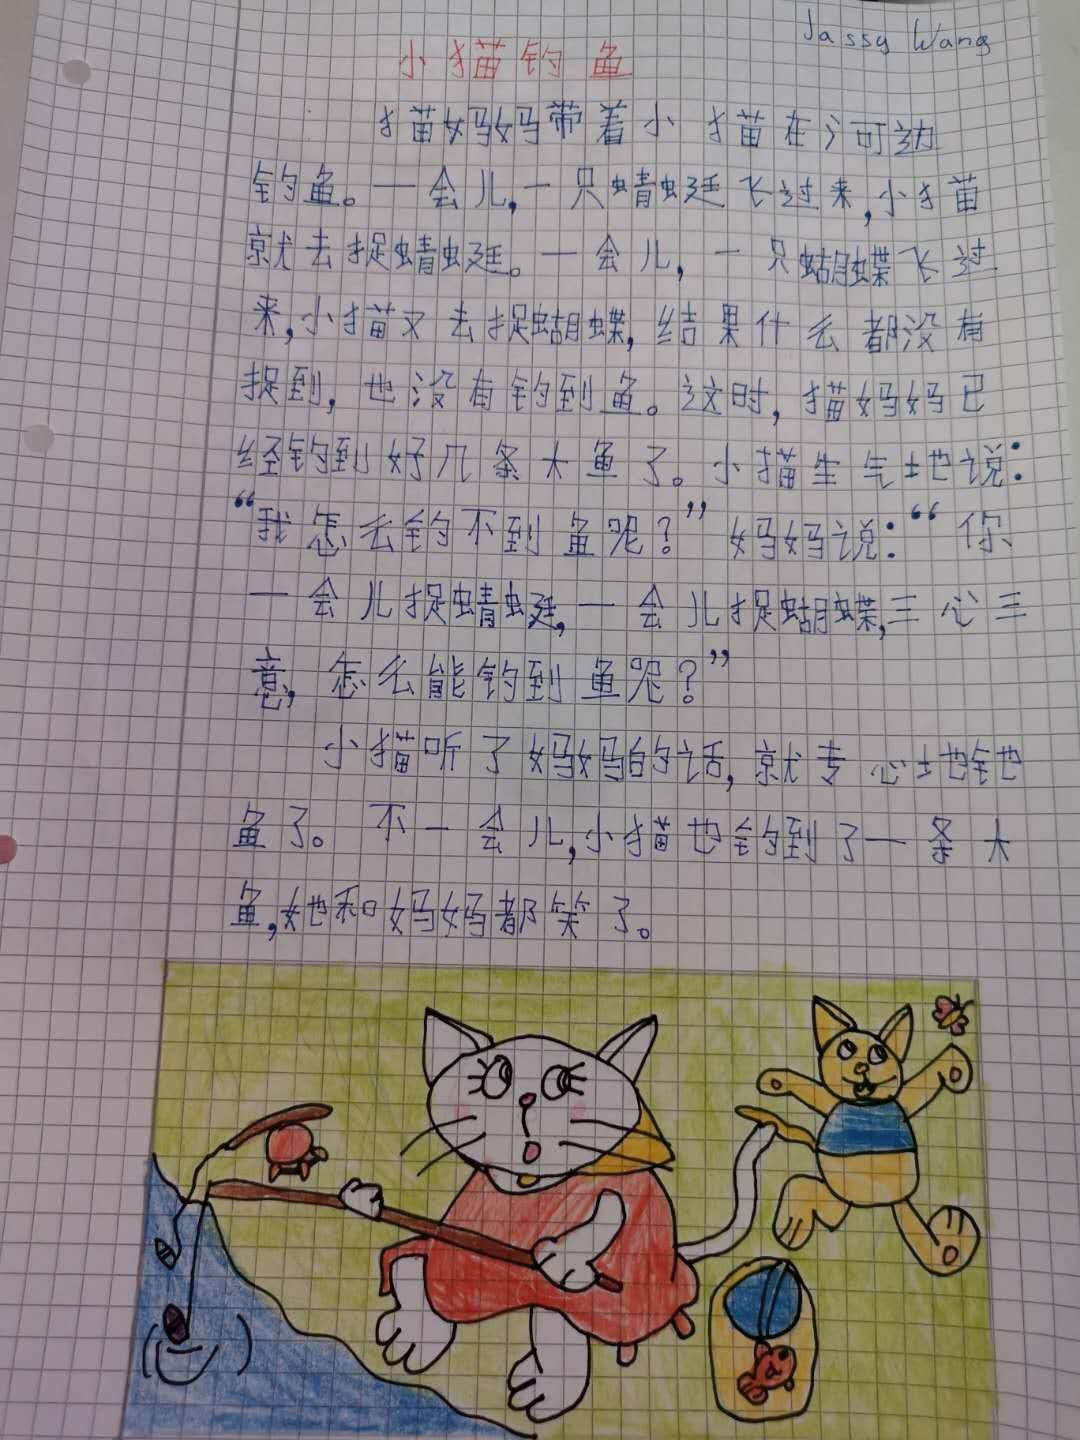 Jassy Wang
小猫钓鱼
猫妈妈带着小猫在河边
钓鱼。一会儿,一只蜻蜓飞过来,小猫
就去捉蜻蜓。一会儿,一只蝴蝶飞过
来,小猫又去捉蝴蝶,结果什么都没有
捉到,也没有钓到鱼。这时,猫妈妈已
经钓到好几条大鱼了。小猫生气地说:
“我怎么钓不到鱼呢?”妈妈说:“你
一会儿捉蜻蜓,一会儿捉蝴蝶,三心三
意,怎么能钓到鱼呢?”
小猫听了妈妈的话,就专心地钓
鱼了。不一会儿,小猫也钓到了一条大
鱼,她和妈妈都笑了。